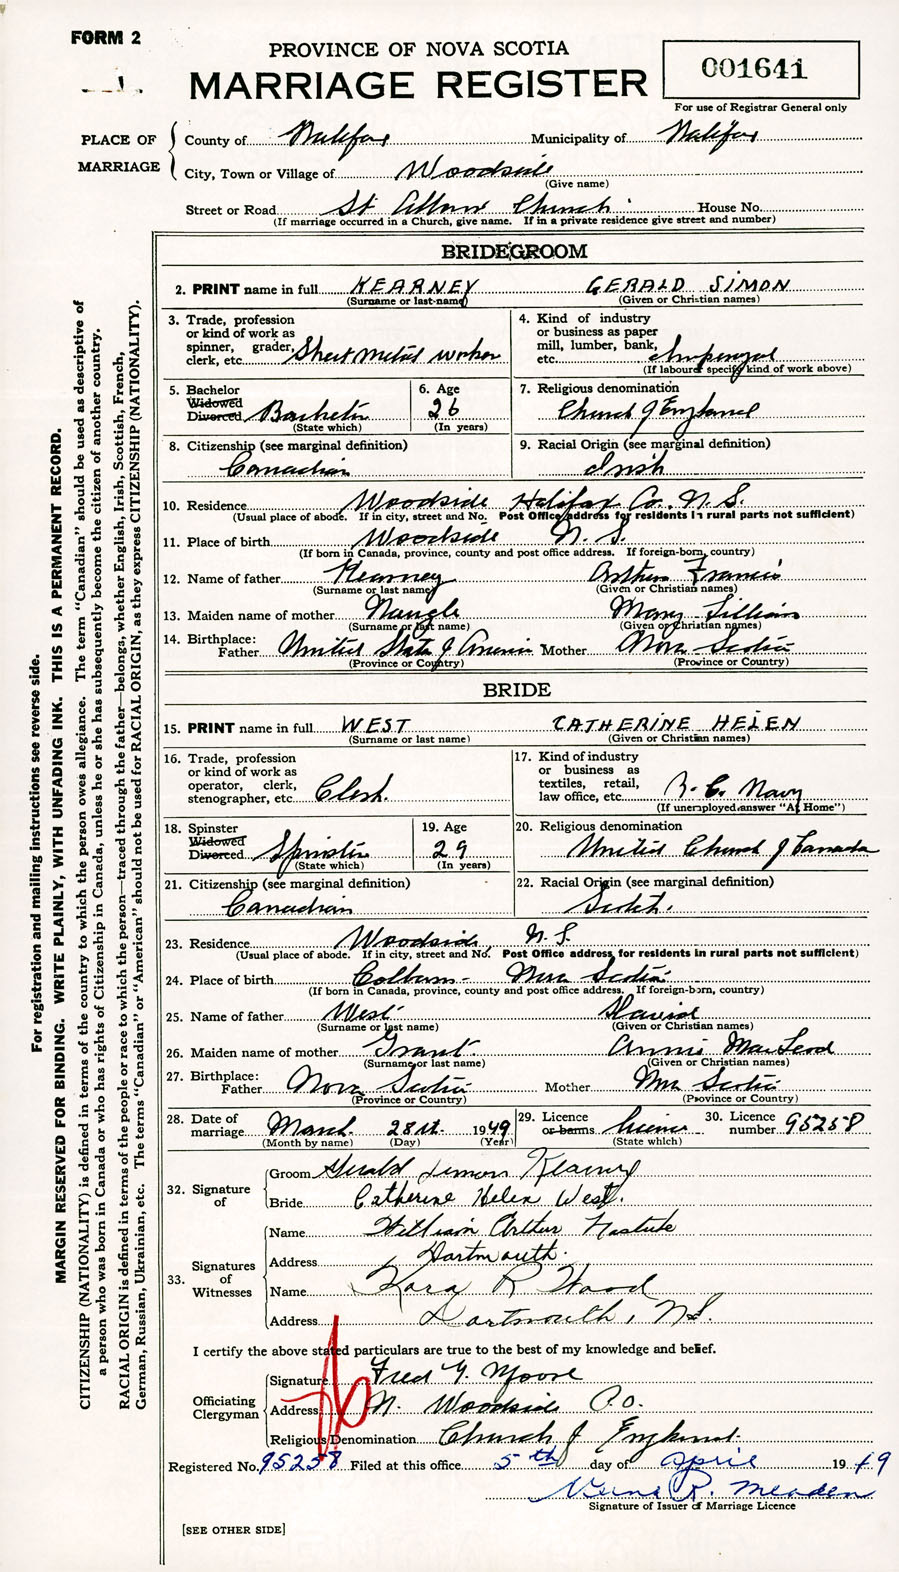 FORM 2
1
PROVINCE OF NOVA SCOTIA
MARRIAGE REGISTER
001641
For use of Registrar General only
PLACE OF MARRIAGE
County of Halifax Municipality of Halifax
City, Town or Village of Woodside
(Give name)
Street or Road St Albans Church House No.
(If marriage occurred in a Church, give name. If in a private residence give street and number)
BRIDEGROOM
2. PRINT name in full KEARNEY GERALD SIMON
(Surname or last-name) (Given or Christian names)
3. Trade, profession or kind of work as spinner, grader, clerk, etc. Sheet metal worker
4. Kind of industry or business as paper mill, lumber, bank, etc.
(If labourer specify kind of work above)
5. Bachelor Widowed Divorced Bachelor
(State which)
6. Age 26
(In years)
7. Religious denomination Church of England
8. Citizenship (see marginal definition) Canadian
9. Racial Origin (see marginal definition) Irish
10. Residence Woodside Halifax Co. N.S.
(Usual place of abode. If in city, street and No. Post Office address for residents in rural parts not sufficient)
11. Place of birth Woodside N.S.
(If born in Canada, province, county and post office address. If foreign-born, country)
12. Name of father Kearney Arthur Francis
(Surname or last name) (Given or Christian names)
13. Maiden name of mother Naugle Mary Lillian
(Surname or last name) (Given or Christian names)
14. Birthplace: Father United State of America Mother Nova Scotia
(Province or Country) (Province or Country)
BRIDE
15. PRINT name in full WEST CATHERINE HELEN
(Surname or last name) (Given or Christian names)
16. Trade, profession or kind of work as operator, clerk, stenographer, etc. Clerk.
17. Kind of industry or business as textiles, retail, law office, etc. R.C. Navy
(If unemployed answer "At Home")
18. Spinster Widowed Divorced Spinster
(State which)
19. Age 29
(In years)
20. Religious denomination United Church of Canada
21. Citizenship (see marginal definition) Canadian
22. Racial Origin (see marginal definition) Scotch.
23. Residence Woodside, N.S.
(Usual place of abode. If in city, street and No. Post Office address for residents in rural parts not sufficient)
24. Place of birth Nova Scotia
(If born in Canada, province, county and post office address. If foreign-born, country)
25. Name of father West David
(Surname or last name) (Given or Christian names)
26. Maiden name of mother Grant. Annie MacLeod
(Surname or last name) (Given or Christian names)
27. Birthplace: Father Nova Scotia Mother Nova Scotia
(Province or Country) (Province or Country)
28. Date of marriage March 28th. 1949
(Month by name) (Day) (Year)
29. Licence or banns license
(State which)
30. Licence number 95258
32. Signature of
Groom Gerald Simon Kearney
Bride Catherine Helen West.
33. Signatures of Witnesses
Name William Arthur
Address Dartmouth.
Name R Wood
Address Dartmouth, N.S.
I certify the above stated particulars are true to the best of my knowledge and belief.
Officiating Clergyman
Signature Fred G. Moore
Address N. Woodside P.O.
Religious Denomination Church of England.
Registered No. 95258 Filed at this office 5th day of April 1949
R. Meaden
Signature of Issuer of Marriage Licence
[SEE OTHER SIDE]
For registration and mailing instructions see reverse side.
MARGIN RESERVED FOR BINDING. WRITE PLAINLY, WITH UNFADING INK. THIS IS A PERMANENT RECORD.
CITIZENSHIP (NATIONALITY) is defined in terms of the country to which the person owes allegiance. The term "Canadian" should be used as descriptive of
a person who was born in Canada or who has rights of Citizenship in Canada, unless he or she has subsequently become the citizen of another country.
RACIAL ORIGIN is defined in terms of the people or race to which the person—traced through the father—belongs, whether English, Irish, Scottish, French,
German, Russian, Ukrainian, etc. The terms "Canadian" or "American" should not be used for RACIAL ORIGIN, as they express CITIZENSHIP (NATIONALITY).